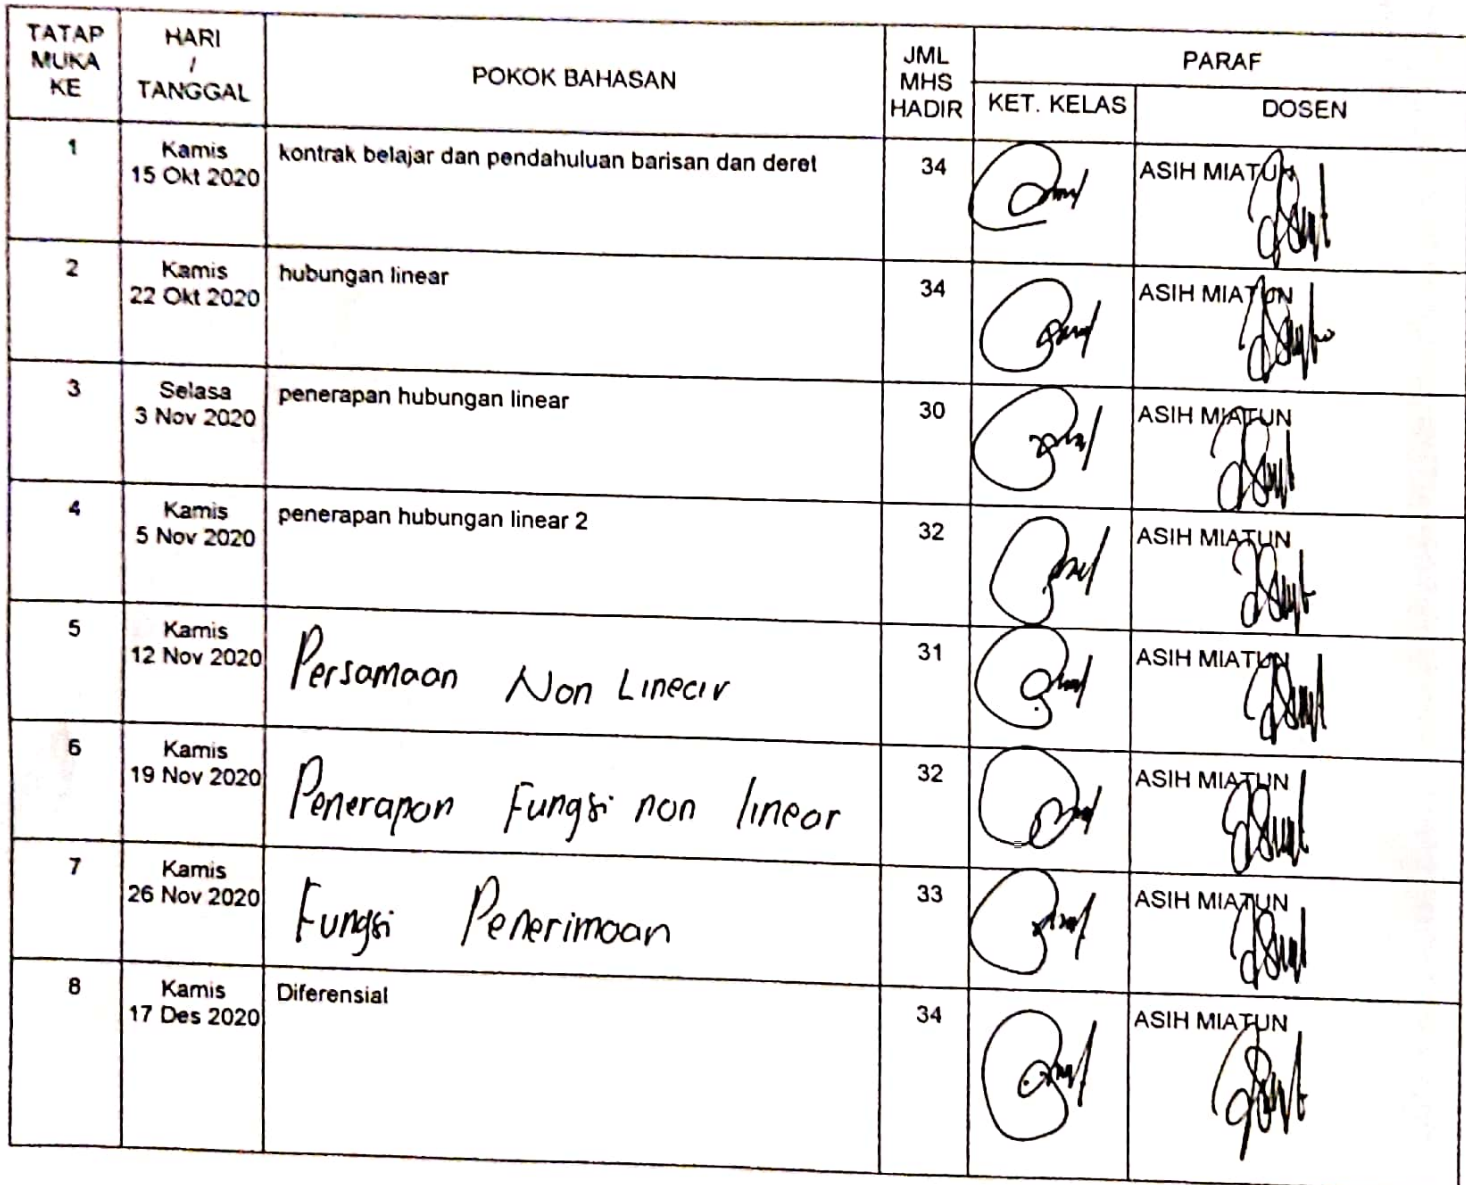 TATAP MUKA KE
HARI / TANGGAL
POKOK BAHASAN
JML MHS HADIR
PARAF
KET. KELAS
DOSEN
1
Kamis
15 Okt 2020
kontrak belajar dan pendahuluan barisan dan deret
34
ASIH MIATUN
2
Kamis
22 Okt 2020
hubungan linear
34
ASIH MIATUN
3
Selasa
3 Nov 2020
penerapan hubungan linear
30
ASIH MIATUN
4
Kamis
5 Nov 2020
penerapan hubungan linear 2
32
ASIH MIATUN
5
Kamis
12 Nov 2020
Persamaan Non Linear
31
ASIH MIATUN
6
Kamis
19 Nov 2020
Penerapan Fungsi non linear
32
ASIH MIATUN
7
Kamis
26 Nov 2020
Fungsi Penerimaan
33
ASIH MIATUN
8
Kamis
17 Des 2020
Diferensial
34
ASIH MIATUN